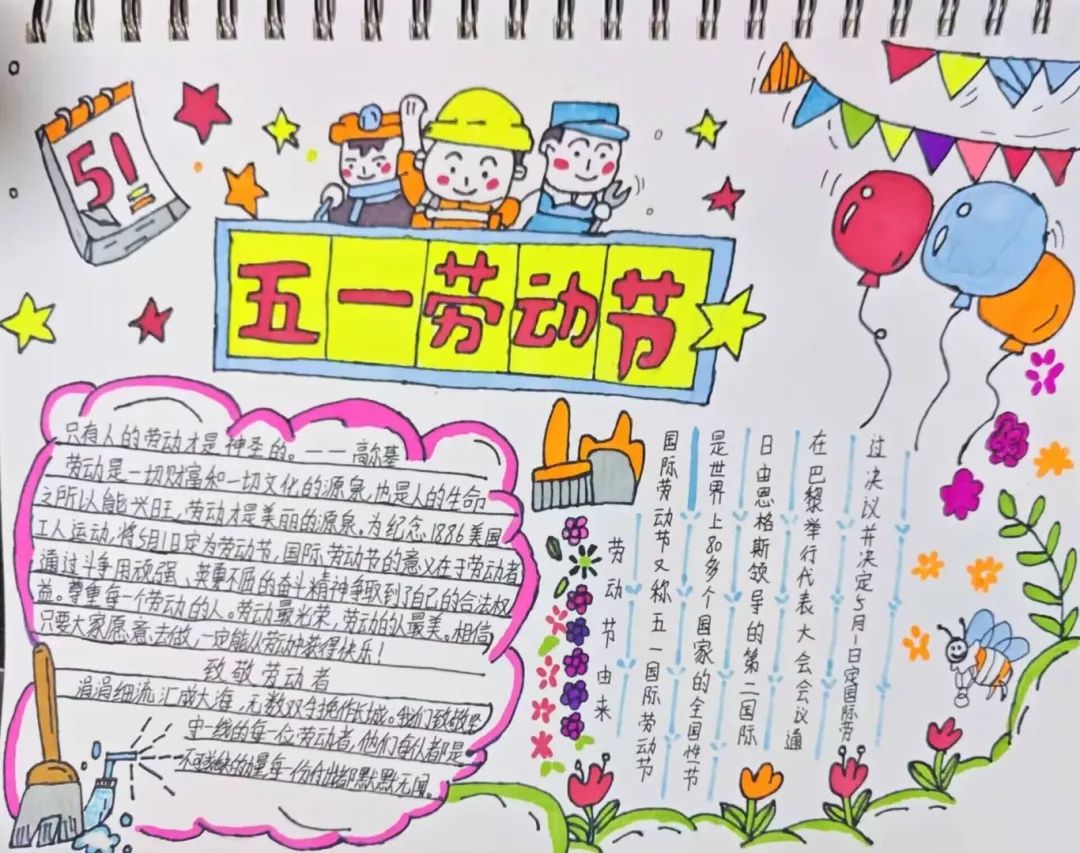 51
五一劳动节
只有人的劳动才是神圣的。——高尔基
劳动是一切财富和一切文化的源泉,也是人的生命
之所以能兴旺,劳动才是美丽的源泉。为纪念1886美国
工人运动,将5月1日定为劳动节,国际劳动节的意义在于劳动者
通过斗争用顽强、英勇不屈的奋斗精神争取到了自己的合法权
益。尊重每一个劳动的人。劳动最光荣,劳动的人最美。相信
只要大家愿意去做,一定能从劳动中获得快乐!
致敬劳动者
涓涓细流汇成大海,无数双手挽作长城。我们致敬坚
守一线的每一位劳动者,他们每个人都是
不可或缺的,每一份付出都默默无闻。
劳动节由来
国际劳动节又称五一国际劳动节
是世界上80多个国家的全国性节
日由恩格斯领导的第二国际
在巴黎举行代表大会会议通
过决议并决定5月1日定国际劳